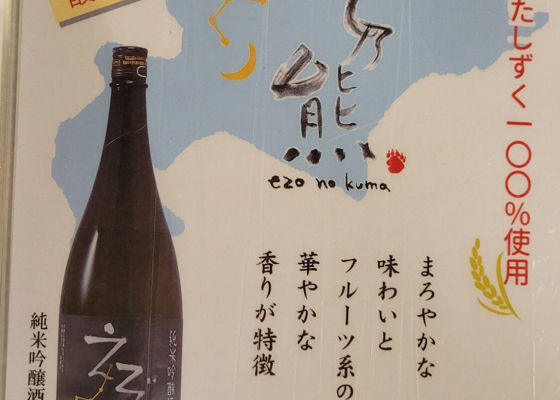 たしずく一〇〇%使用
乃熊
ezo no kuma
まろやかな
味わいと
フルーツ系の
華やかな
香りが特徴
純米吟醸酒
純米吟醸